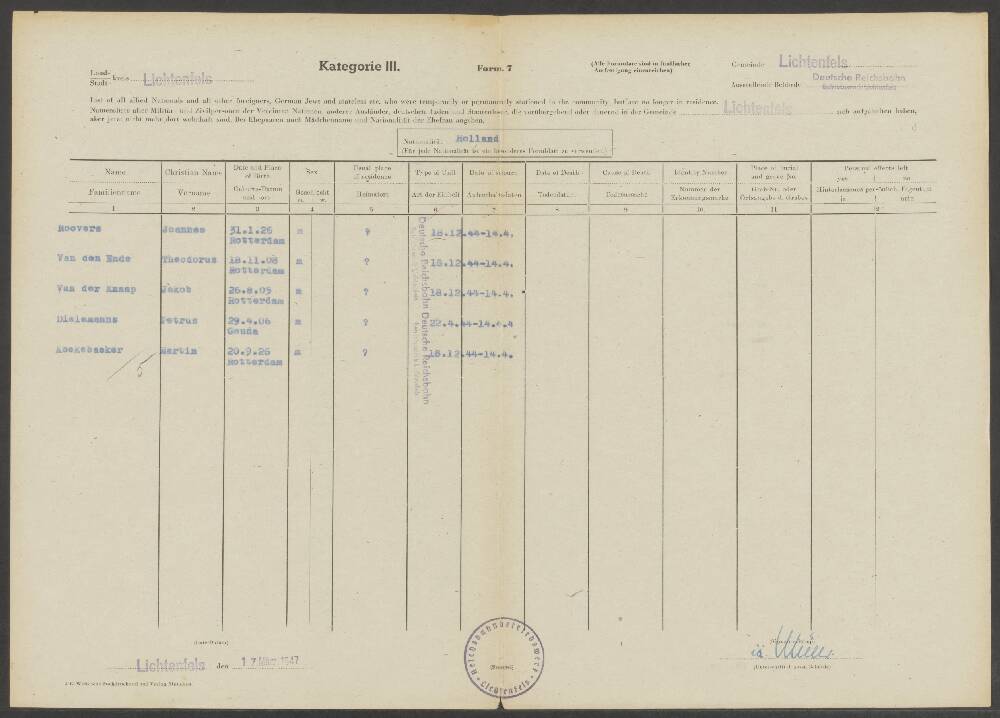 Land-
Stadt- kreis Lichtenfels
Kategorie III.
Form. 7
(Alle Formulare sind in fünffacher
Ausfertigung einzureichen)
Gemeinde Lichtenfels
Ausstellende Behörde Deutsche Reichsbahn
List of all allied Nationals and all other foreigners, German Jews and stateless etc. who were temporarily or permanently stationed in the community, but are no longer in residence.
Namensliste aller Militär- und Zivilpersonen der Vereinten Nationen, anderer Ausländer, deutschen Juden und Staatenlosen, die vorübergehend oder dauernd in der Gemeinde Lichtenfels sich aufgehalten haben,
aber jetzt nicht mehr dort wohnhaft sind. Bei Ehepaaren auch Mädchenname und Nationalität der Ehefrau angeben.
Nationalität Holland
(Für jede Nationalität ist ein besonderes Formblatt zu verwenden)
Name Christian Name Date and Place of Birth Sex Usual place of residence Type of Unit Date of sojourn Date of Death Cause of Death Identity Number Place of burial and grave No. Personal effects left yes no
Familienname Vorname Geburts-Datum und -ort Geschlecht m. w. Heimatort Art der Einheit Aufenthaltsdaten Todesdatum Todesursache Nummer der Erkennungsmarke Grab-Nr. oder Ortsangabe d. Grabes Hinterlassenes persönlich. Eigentum ja nein
1 2 3 4 5 6 7 8 9 10 11 12
Roovers Joannes 31.1.26 m ? 18.12.44-14.4.
Rotterdam
Van den Ende Theodorus 18.11.08 m ? 18.12.44-14.4.
Rotterdam
Van der Knaap Jakob 26.8.05 m ? 18.12.44-14.4.
Rotterdam
Dielemanns Petrus 29.4.06 m ? 22.4.44-14.4.4
Gouda
Koekebacker Martin 20.9.26 m ? 18.12.44-14.4.
Rotterdam
5
Deutsche Reichsbahn Deutsche Reichsbahn
Lichtenfels den 17. März 1947
Lichtenfels